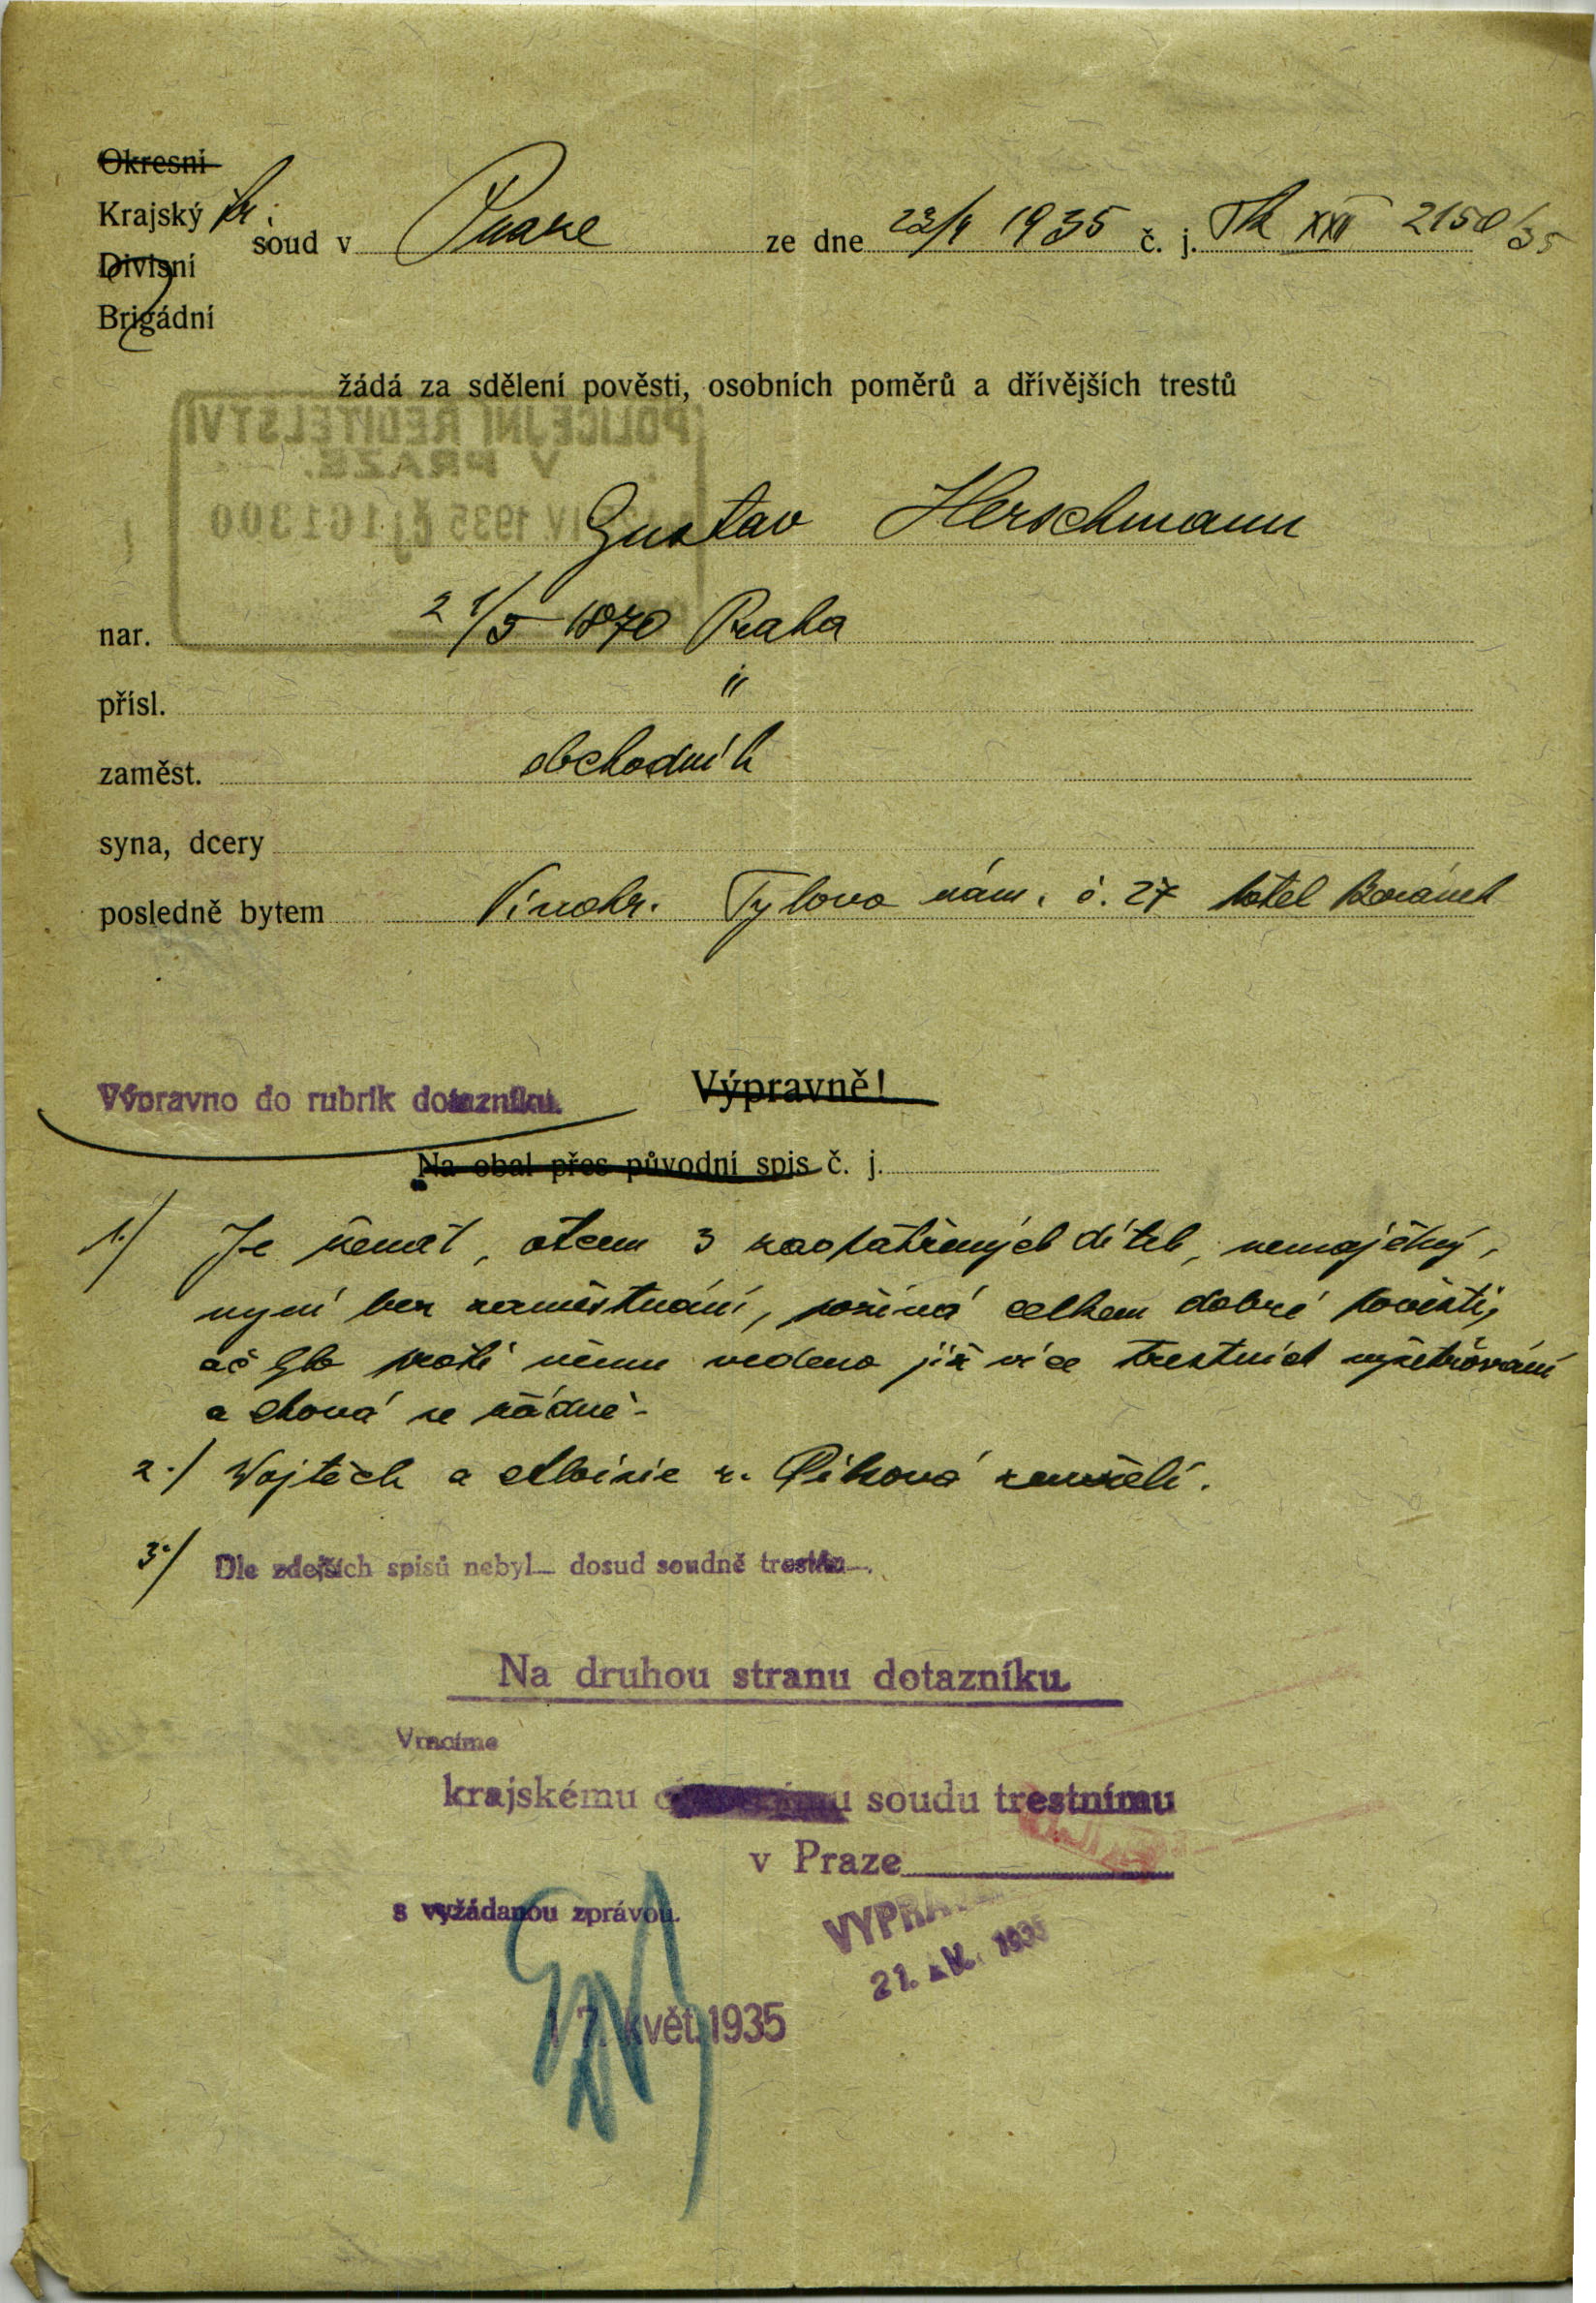 Okresní
Krajský tr.
soud v Praze ze dne 23/4 1935 č. j. Tk XXII 2150/35
Divisní
Brigádní
žádá za sdělení pověsti, osobních poměrů a dřívějších trestů
POLICEJNÍ ŘEDITELSTVÍ
V PRAZE.
IV 1935 čj 161300
Gustav Herschmann
nar. 21/5 1870 Praha
přísl. "
zaměst. obchodník
syna, dcery
posledně bytem Vinohr. Tylovo nám. č. 27 hotel Beránek
Výpravno do rubrik dotazníku. Výpravně!
Na obal přes původní spis č. j.
1./ Je ženat, otcem 3 zaopatřených dítek, nemajetný,
nyní bez zaměstnání, požívá celkem dobré pověsti,
ač bylo proti němu vedeno již více trestních vyšetřování
a chová se řádně.
2./ Vojtěch a Albixie r. Piková zemřelí.
3./ Dle zdejších spisů nebyl dosud soudně trestán.
Na druhou stranu dotazníku.
Vracíme
krajskému soudu trestnímu
v Praze
s vyžádanou zprávou.
VYPRA
21. 1935
17. květ. 1935